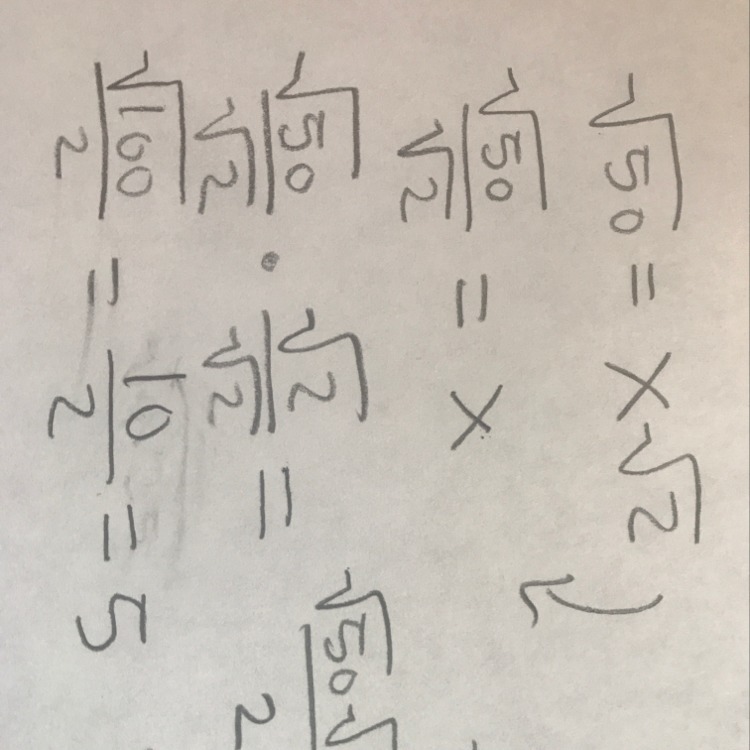 √50 = x√2
√50/√2 = x
√50/√2 · √2/√2 = √50√/2
√100/2 = 10/2 = 5